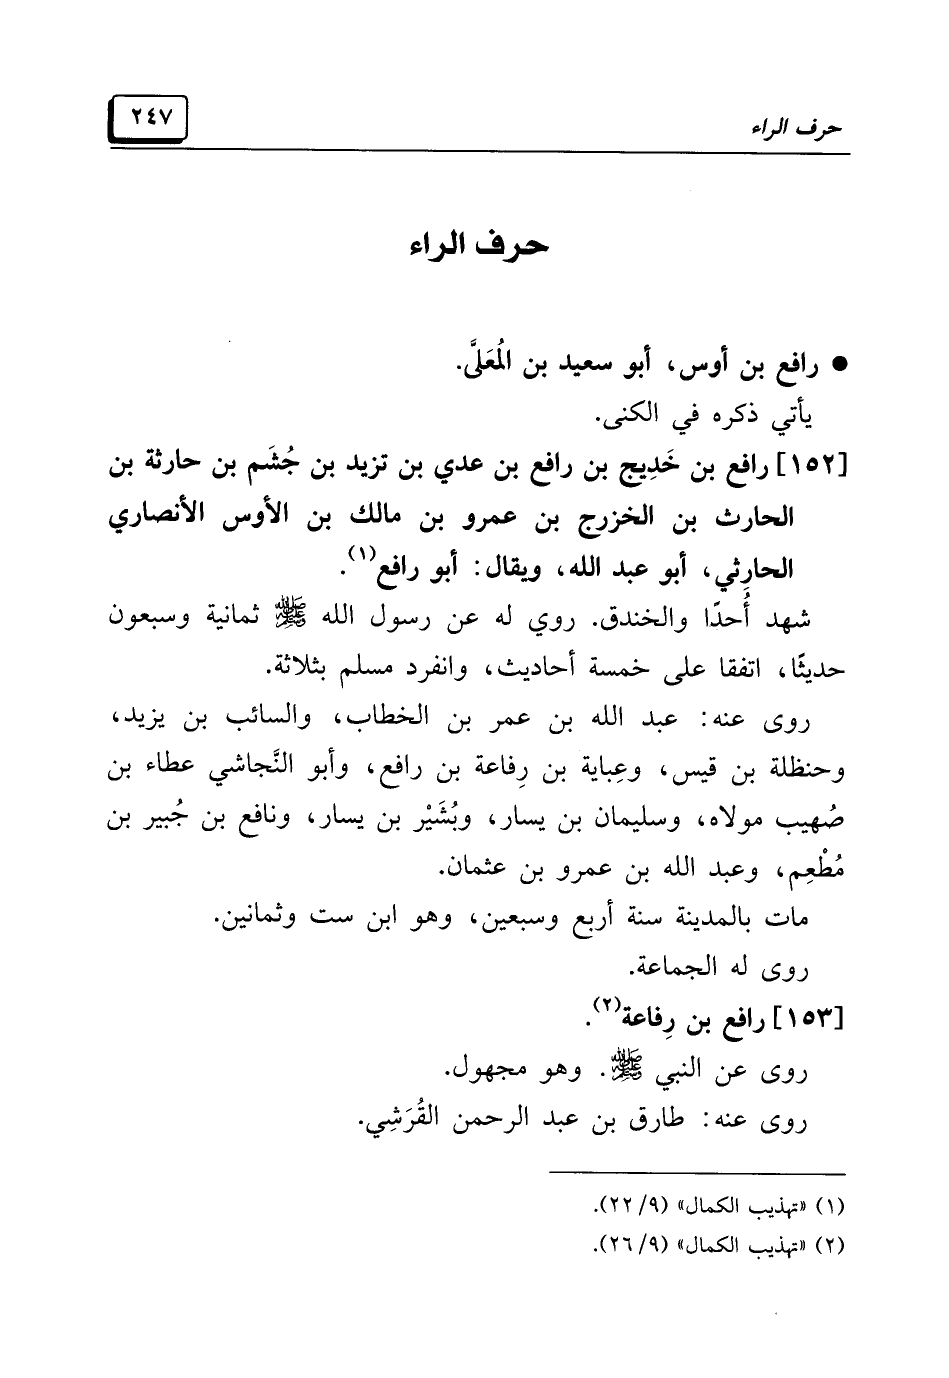 حرف الراء
٢٤٧
حرف الراء
● رافع بن أوس، أبو سعيد بن المُعَلَّى.
يأتي ذكره في الكنى.
[١٥٢] رافع بن خَدِيج بن رافع بن عدي بن تزيد بن جُشَم بن حارثة بن
الحارث بن الخزرج بن عمرو بن مالك بن الأوس الأنصاري
الحارِثي، أبو عبد الله، ويقال: أبو رافع(١).
شهد أُحدًا والخندق. روي له عن رسول الله ﷺ ثمانية وسبعون
حديثًا، اتفقا على خمسة أحاديث، وانفرد مسلم بثلاثة.
روى عنه: عبد الله بن عمر بن الخطاب، والسائب بن يزيد،
وحنظلة بن قيس، وعِباية بن رِفاعة بن رافع، وأبو النَّجاشي عطاء بن
صُهيب مولاه، وسليمان بن يسار، وبُشَيْر بن يسار، ونافع بن جُبير بن
مُطْعِم، وعبد الله بن عمرو بن عثمان.
مات بالمدينة سنة أربع وسبعين، وهو ابن ست وثمانين.
روى له الجماعة.
[١٥٣] رافع بن رِفاعة(٢).
روى عن النبي ﷺ. وهو مجهول.
روى عنه: طارق بن عبد الرحمن القُرَشِي.
(١) «تهذيب الكمال» (٩/ ٢٢).
(٢) «تهذيب الكمال» (٩/ ٢٦).